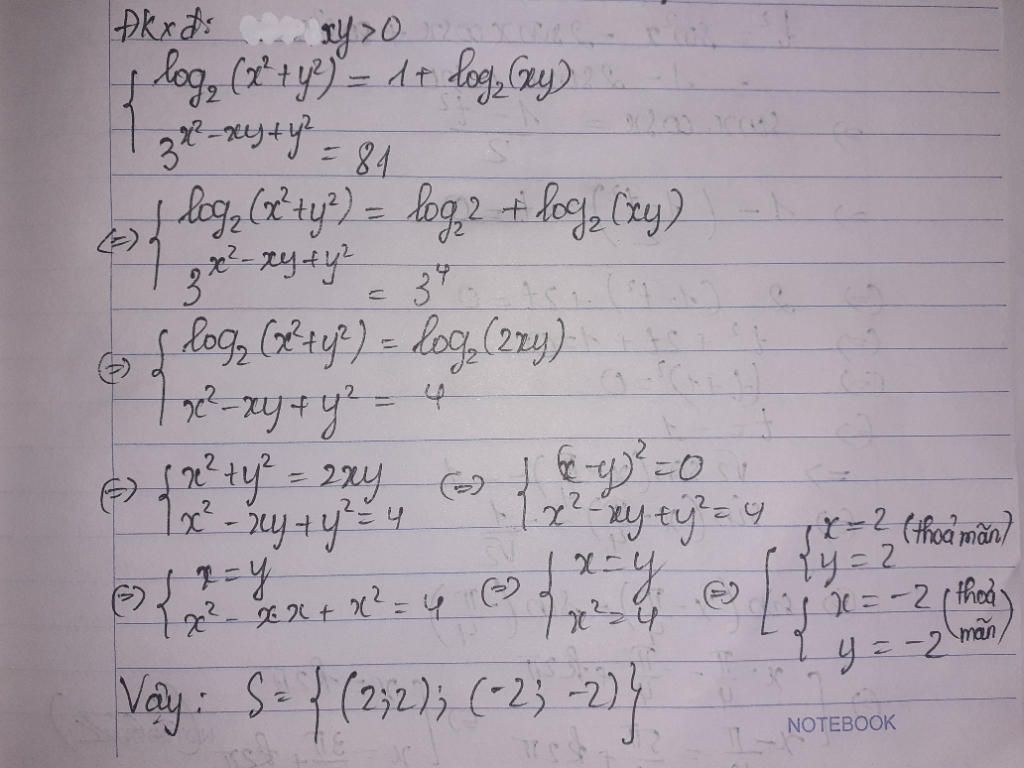 Đkxđ: xy>0
{ log₂(x²+y²) = 1 + log₂(xy)
3^(x²-xy+y²) = 81
(=) { log₂(x²+y²) = log₂2 + log₂(xy)
3^(x²-xy+y²) = 3⁴
(=) { log₂(x²+y²) = log₂(2xy)
x²-xy+y² = 4
(=) { x²+y² = 2xy (=) { (x-y)² = 0
x²-xy+y² = 4 x²-xy+y² = 4
(=) { x=y (=) { x=y (=) [ { x=2 (thoả mãn)
y=2
x²-x·x+x² = 4 x²=4 { x=-2 (thoả mãn)
y=-2
Vậy: S = {(2;2); (-2; -2)}
NOTEBOOK